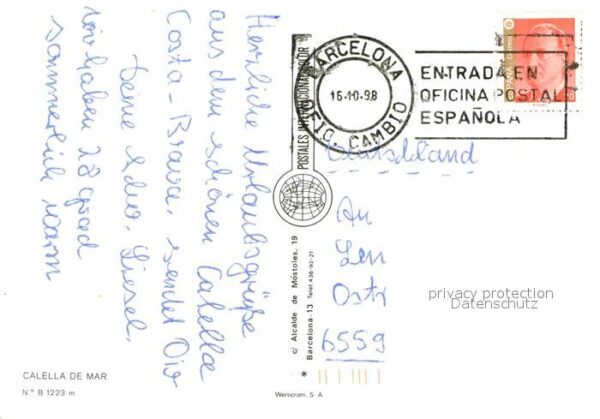 Herzliche Urlaubsgrüße
aus dem schönen Calella
Costa-Brava, sendet Dir
Deine Schw. Liesel.
wir haben 28 grad
sommerlich warm
CALELLA DE MAR
N.º B 1223 m
POSTALES INTERNACIONAL COLOR
c/ Alcalde de Móstoles, 19
Barcelona-13 Telef. 436-92-21
BARCELONA
16-10-98
OFIC. CAMBIO
ENTRADA EN
OFICINA POSTAL
ESPAÑOLA
ESPAÑA
Deutschland
An
Len
Ostr
6559
privacy protection
Datenschutz